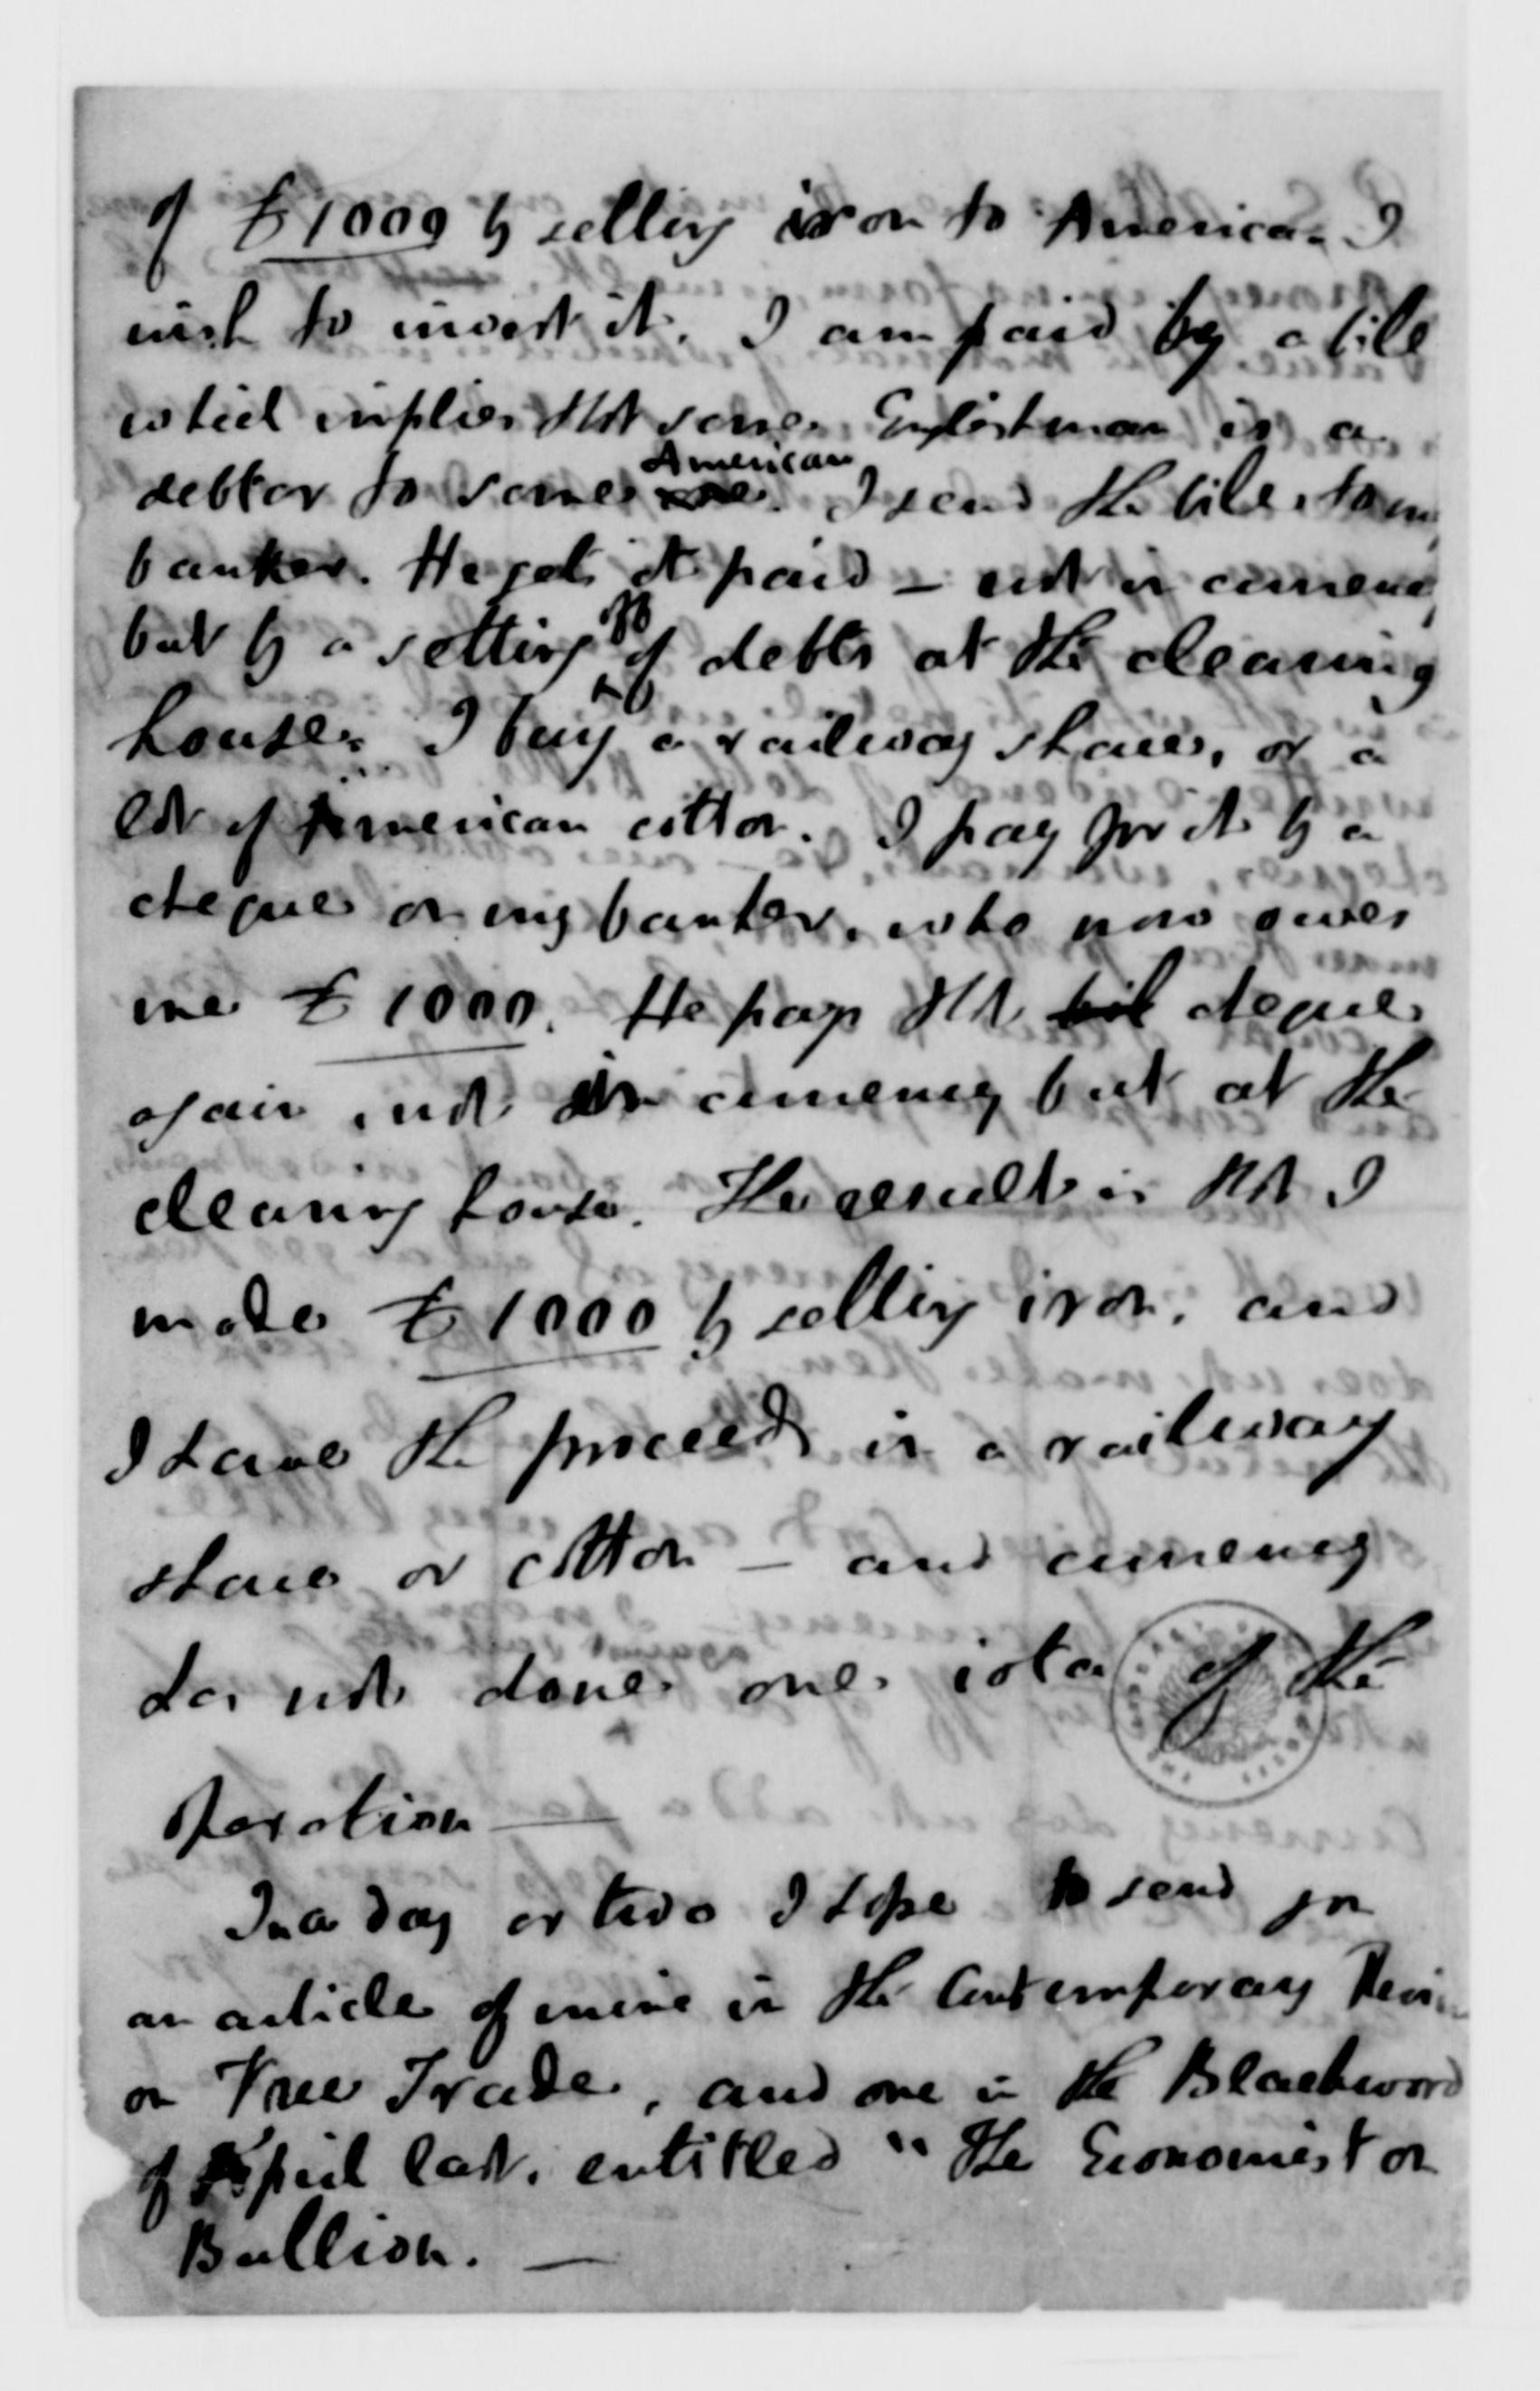 of £1000 by selling iron to America. I
wish to invest it. I am paid by a bill
which implies that some Englishman is a
debtor to some one American. I send the bill to my
banker. He gets it paid – not in currency
but by a setting off of debts at the clearing
house. I buy a railway share, or a
lot of American cotton. I pay for it by a
cheque on my banker, who now owes
me £1000. He pays that bil cheque
again, not in currency but at the
clearing house. The result is that I
made £1000 by selling iron, and
I have the proceeds in a railway
share or cotton – and currency
has not done one iota of the
operation —
In a day or two I hope to send you
an article of mine in the Contemporary Review
on Free Trade, and one in the Blackwood
of April last, entitled "The Economist on
Bullion. —